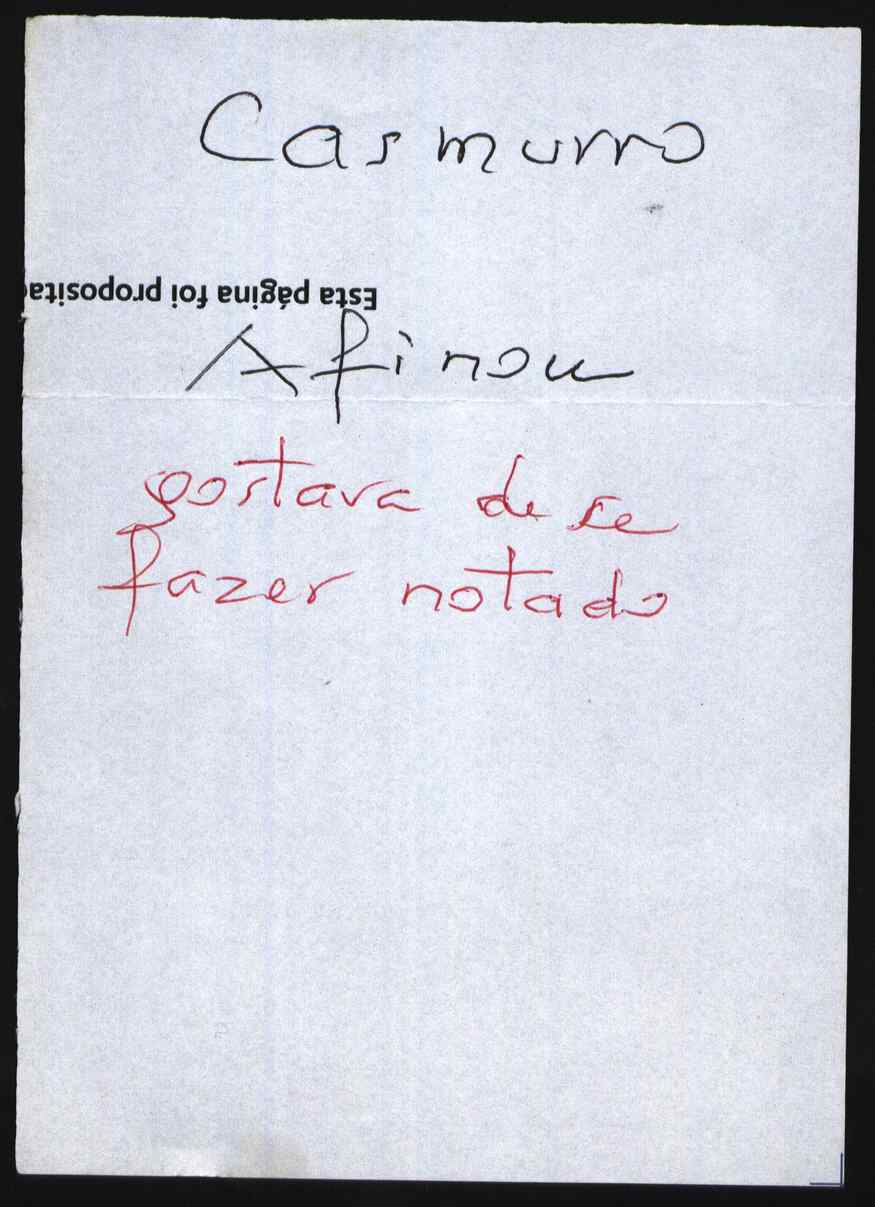 Casmurro
Esta página foi proposita
Afinou
gostava de se
fazer notado